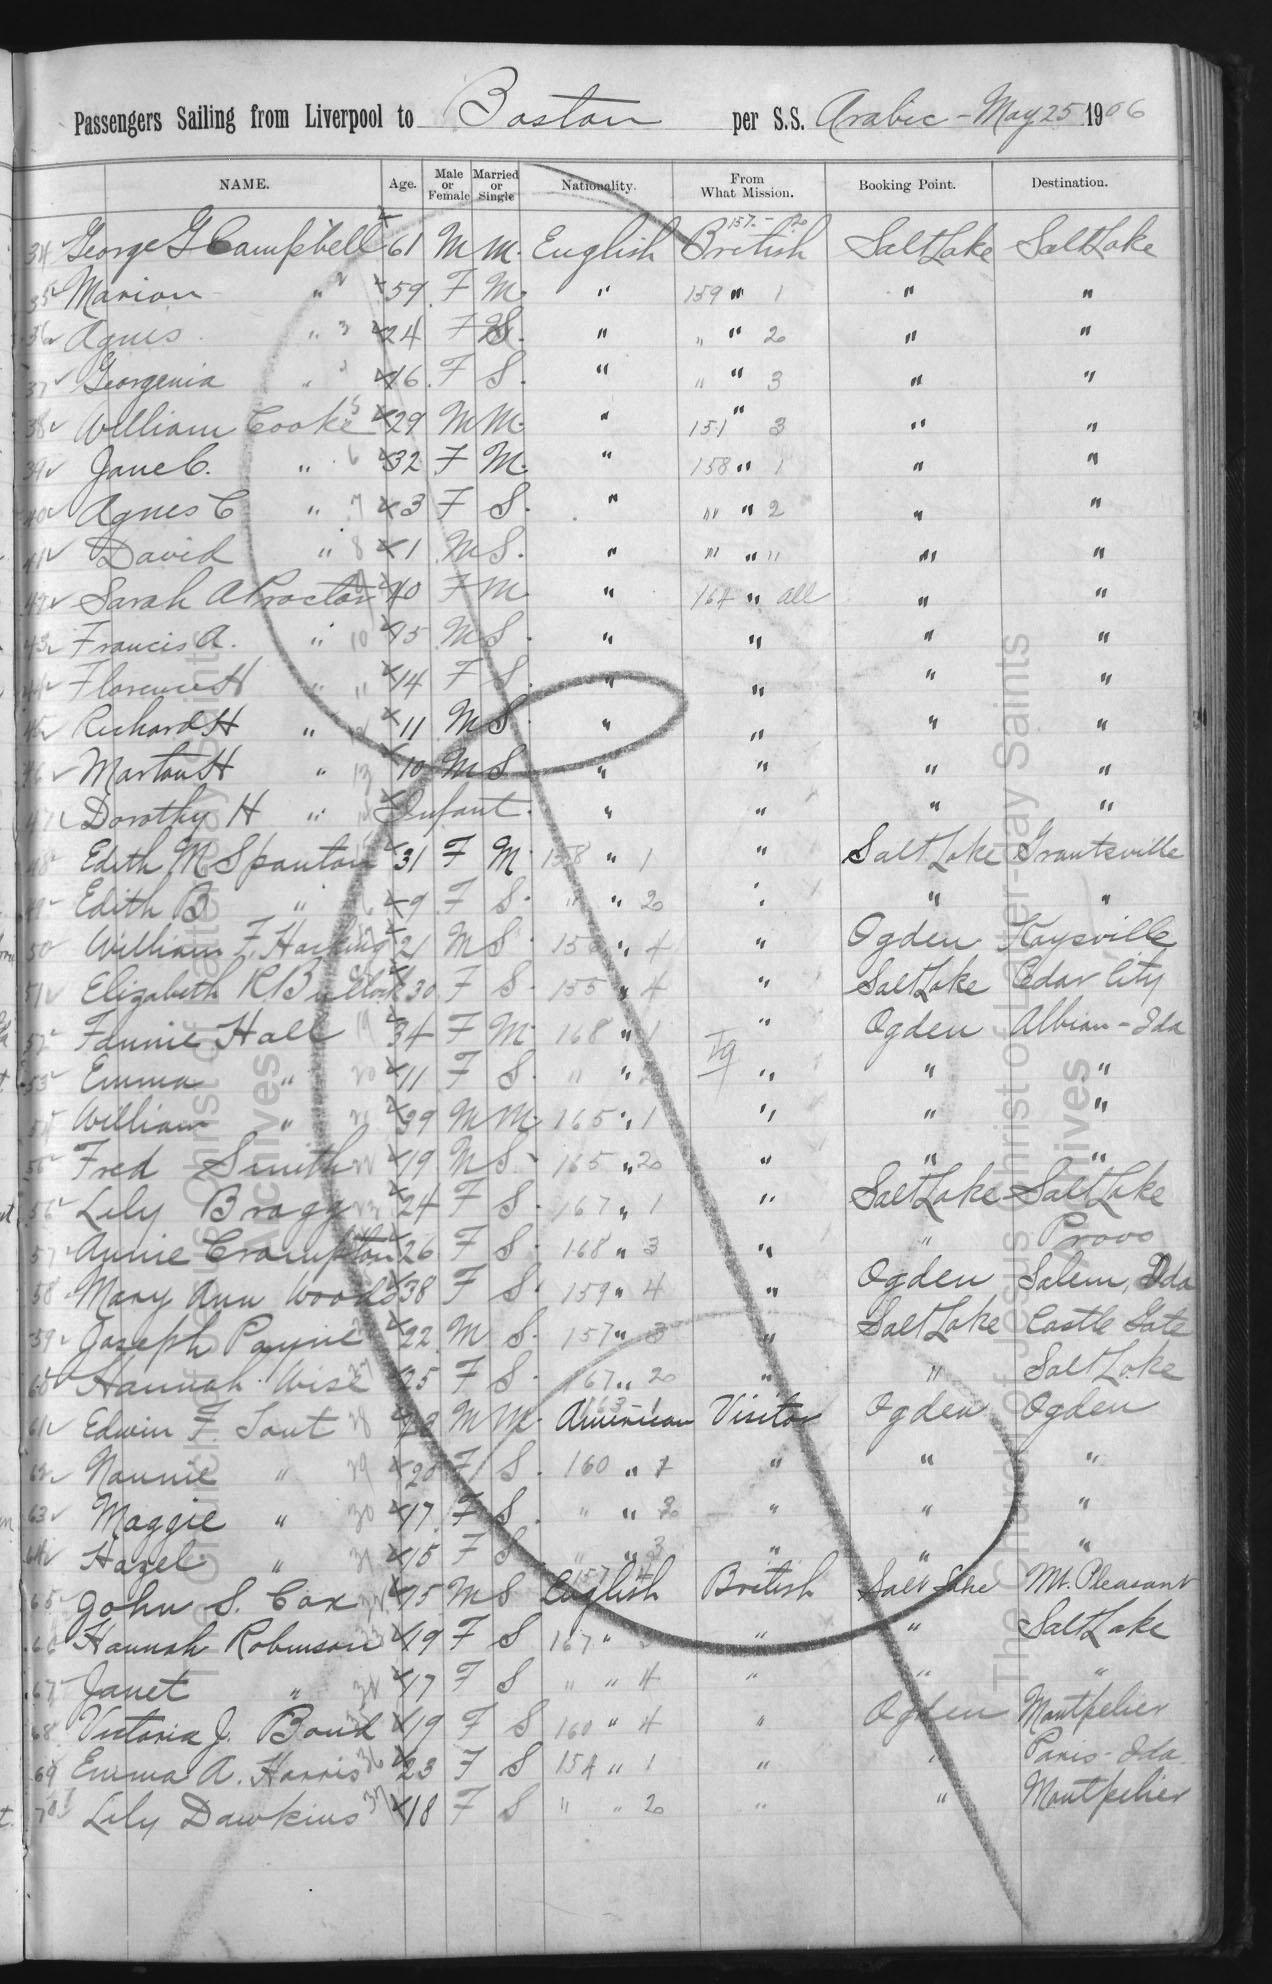 Passengers Sailing from Liverpool to Boston per S.S. Arabic - May 25 1906
NAME. Age. Male or Female Married or Single Nationality. From What Mission. Booking Point. Destination.
157. - 20
34 George G Campbell 61 M M. English British Salt Lake Salt Lake
35 Marion " 2 59 F M. " 159 " 1 " "
36 Agnes " 3 24 F S. " " " 20 " "
37 Georgenia " 16 F S. " " " 3 " "
38 William Cooke 5 29 M M. " 151 " 3 " "
39 Jane C. " 6 32 F M. " 158 " 1 " "
40 Agnes C " 7 3 F S. " " " 2 " "
41 David " 8 1 M S. " " " " " "
42 Sarah A Proctor 40 F M " 164 " all " "
43 Francis A. " 10 15 M S. " " " "
44 Florence H " 11 14 F S. " " " "
45 Richard H " 12 11 M S. " " " "
46 Marton H " 13 10 M S " " " "
47 Dorothy H " Infant. " " " "
48 Edith M Spanton 31 F M 158 " 1 " Salt Lake Grantsville
49 Edith B " 9 F S. " " 20 " " "
50 William F. Harding 21 M S. " 4 " Ogden Kaysville
51 Elizabeth R Bullock 30 F S. 155 " 4 " Salt Lake Cedar City
52 Fannie Hall 19 34 F M. 168 " 1 " Ogden Albion - Ida
53 Emma " 20 11 F S. " " " " "
54 William " 21 39 M M. 165 " 1 " " "
55 Fred Smith 22 19 M S. 165 " 20 " " "
56 Lily Bragg 23 24 F S. 167 " 1 " Salt Lake Salt Lake
57 Annie Crompton 26 F S. 168 " 3 " " Provo
58 Mary Ann Woods 38 F S. 159 " 4 " Ogden Salem, Ida
59 Joseph Payne 22 M S. 157 " 3 " Salt Lake Castle Gate
60 Hannah Wise 27 25 F S. 167 " 20 " " Salt Lake
61 Edwin F. Tout 28 M M. American Visitor Ogden Ogden
62 Nannie " 29 20 F S. 160 " 1 " " "
63 Maggie " 30 17 F S. " " " " "
64 Hazel " 31 15 F S " " 3 " " "
65 John S. Cox 75 M S English British Salt Lake Mt. Pleasant
66 Hannah Robinson 33 19 F S 167 " " " Salt Lake
67 Janet " 34 17 F S " " 4 " " "
68 Victoria J. Bond 19 F S 160 " 4 " Ogden Montpelier
69 Emma A. Harris 36 23 F S 154 " 1 " " Paris - Ida
70 Lily Dawkins 37 18 F S " " 20 " " Montpelier
The Church of Jesus Christ of Latter-day Saints
Archives
The Church of Jesus Christ of Latter-day Saints
Archives